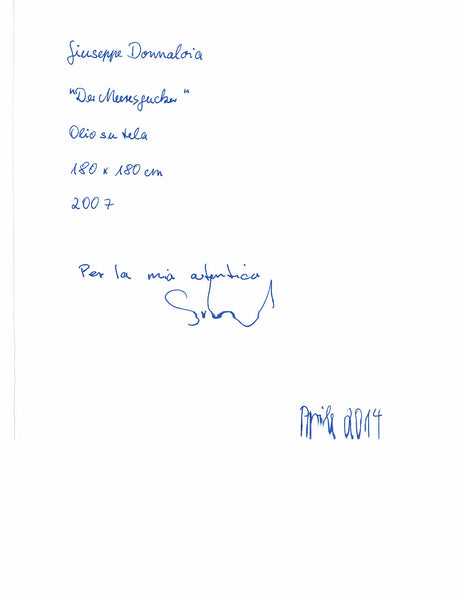 Giuseppe Donnaloia
"Der Meeresgucker"
Olio su tela
180 x 180 cm
2007
Per la mia autentica
Aprile 2014